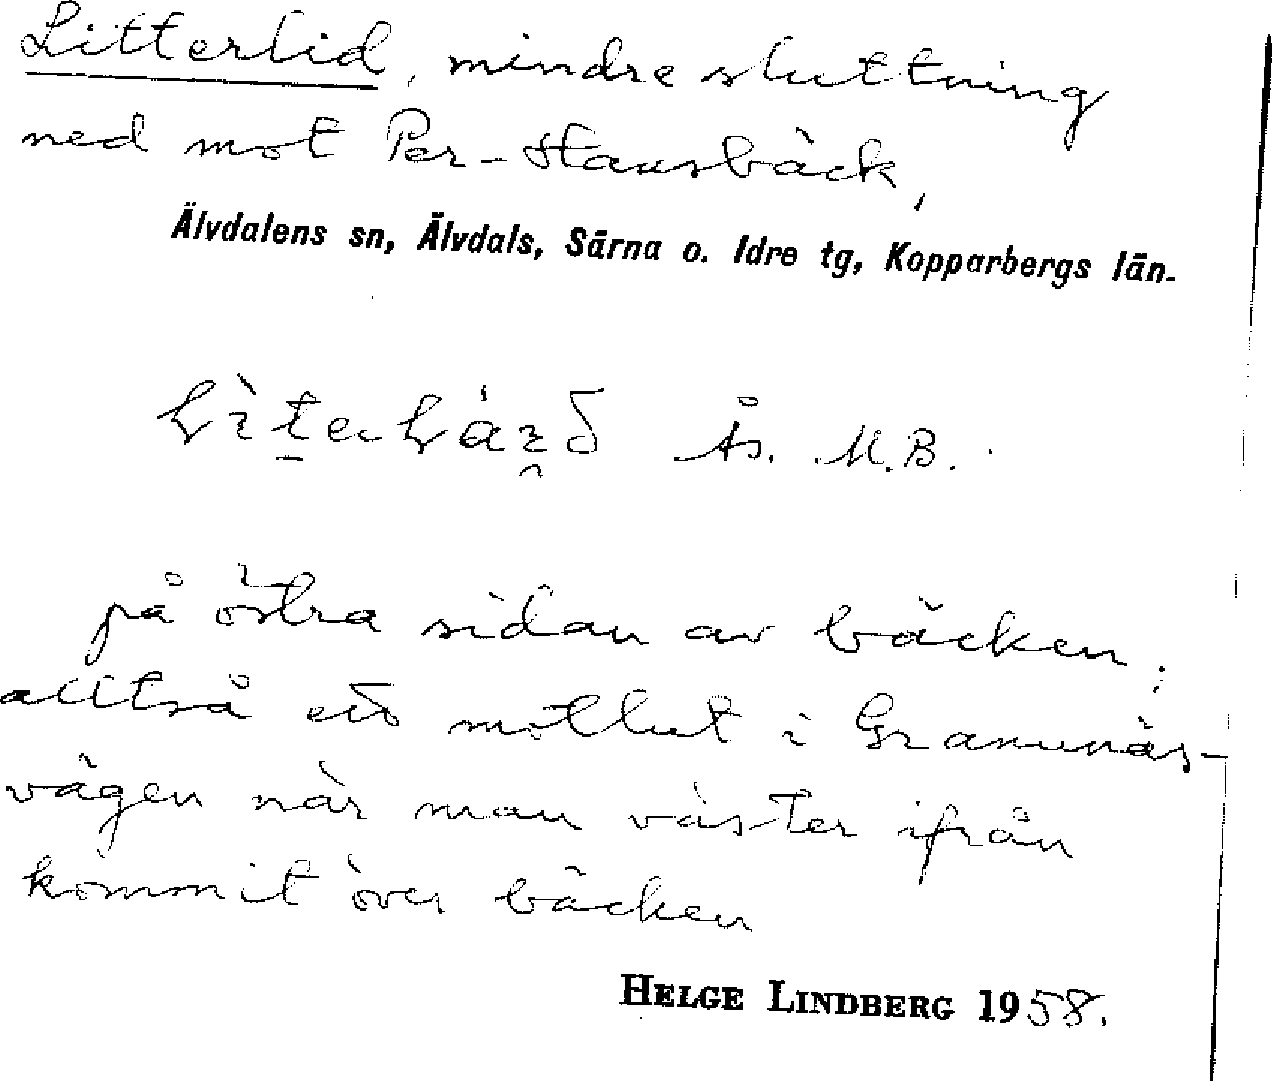 Litterlid, mindre sluttning
ned mot Per-Hansbäck,
Älvdalens sn, Älvdals, Särna o. Idre tg, Kopparbergs län.
Ås. M.B.
på östra sidan av bäcken;
alltså ett motlut i Granunäs-
vägen när man väster ifrån
kommit över bäcken
HELGE LINDBERG 1958.